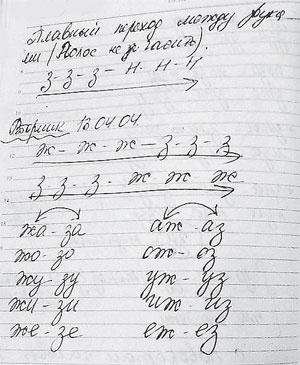 Плавный переход между звука
ми (Голос не гасить).
З-З-З-Н-Н-Н
Вторник 13.04.04.
Ж-Ж-Ж-З-З-З
З-З-З-Ж Ж Ж
жа-за аж-аз
жо-зо ож-оз
жу-зу уж-уз
жи-зи иж-из
же-зе еж-ез